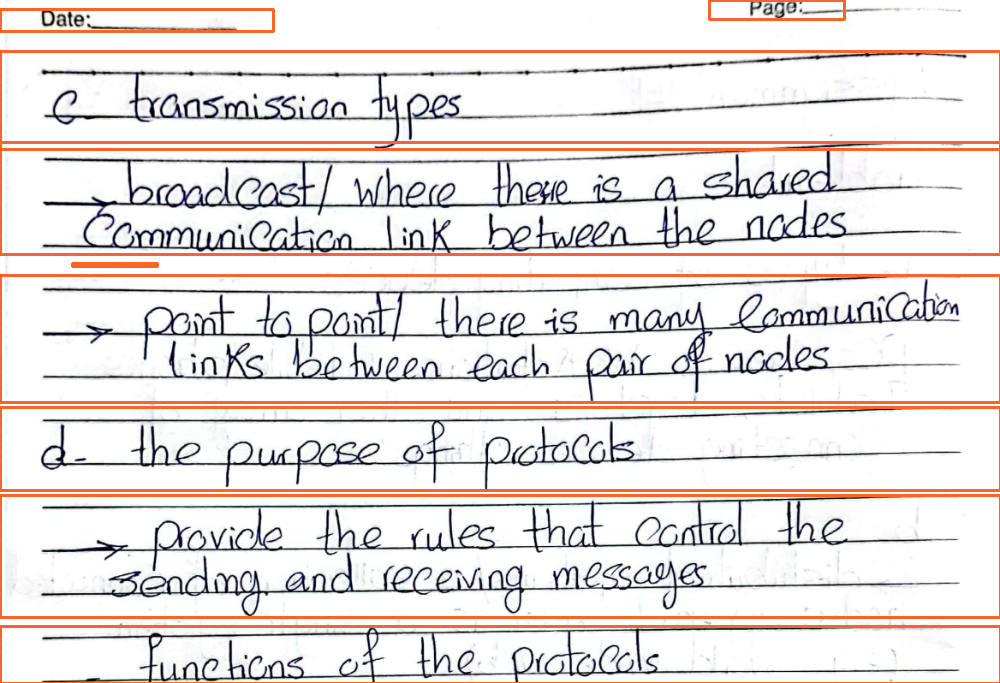 Date:
Page:
c- transmission types
→ broadcast/ where there is a shared
Communication link between the nodes
→ point to point/ there is many Communication
links between each pair of nodes
d- the purpose of protocols
→ provide the rules that control the
sending and receiving messages
- functions of the protocols